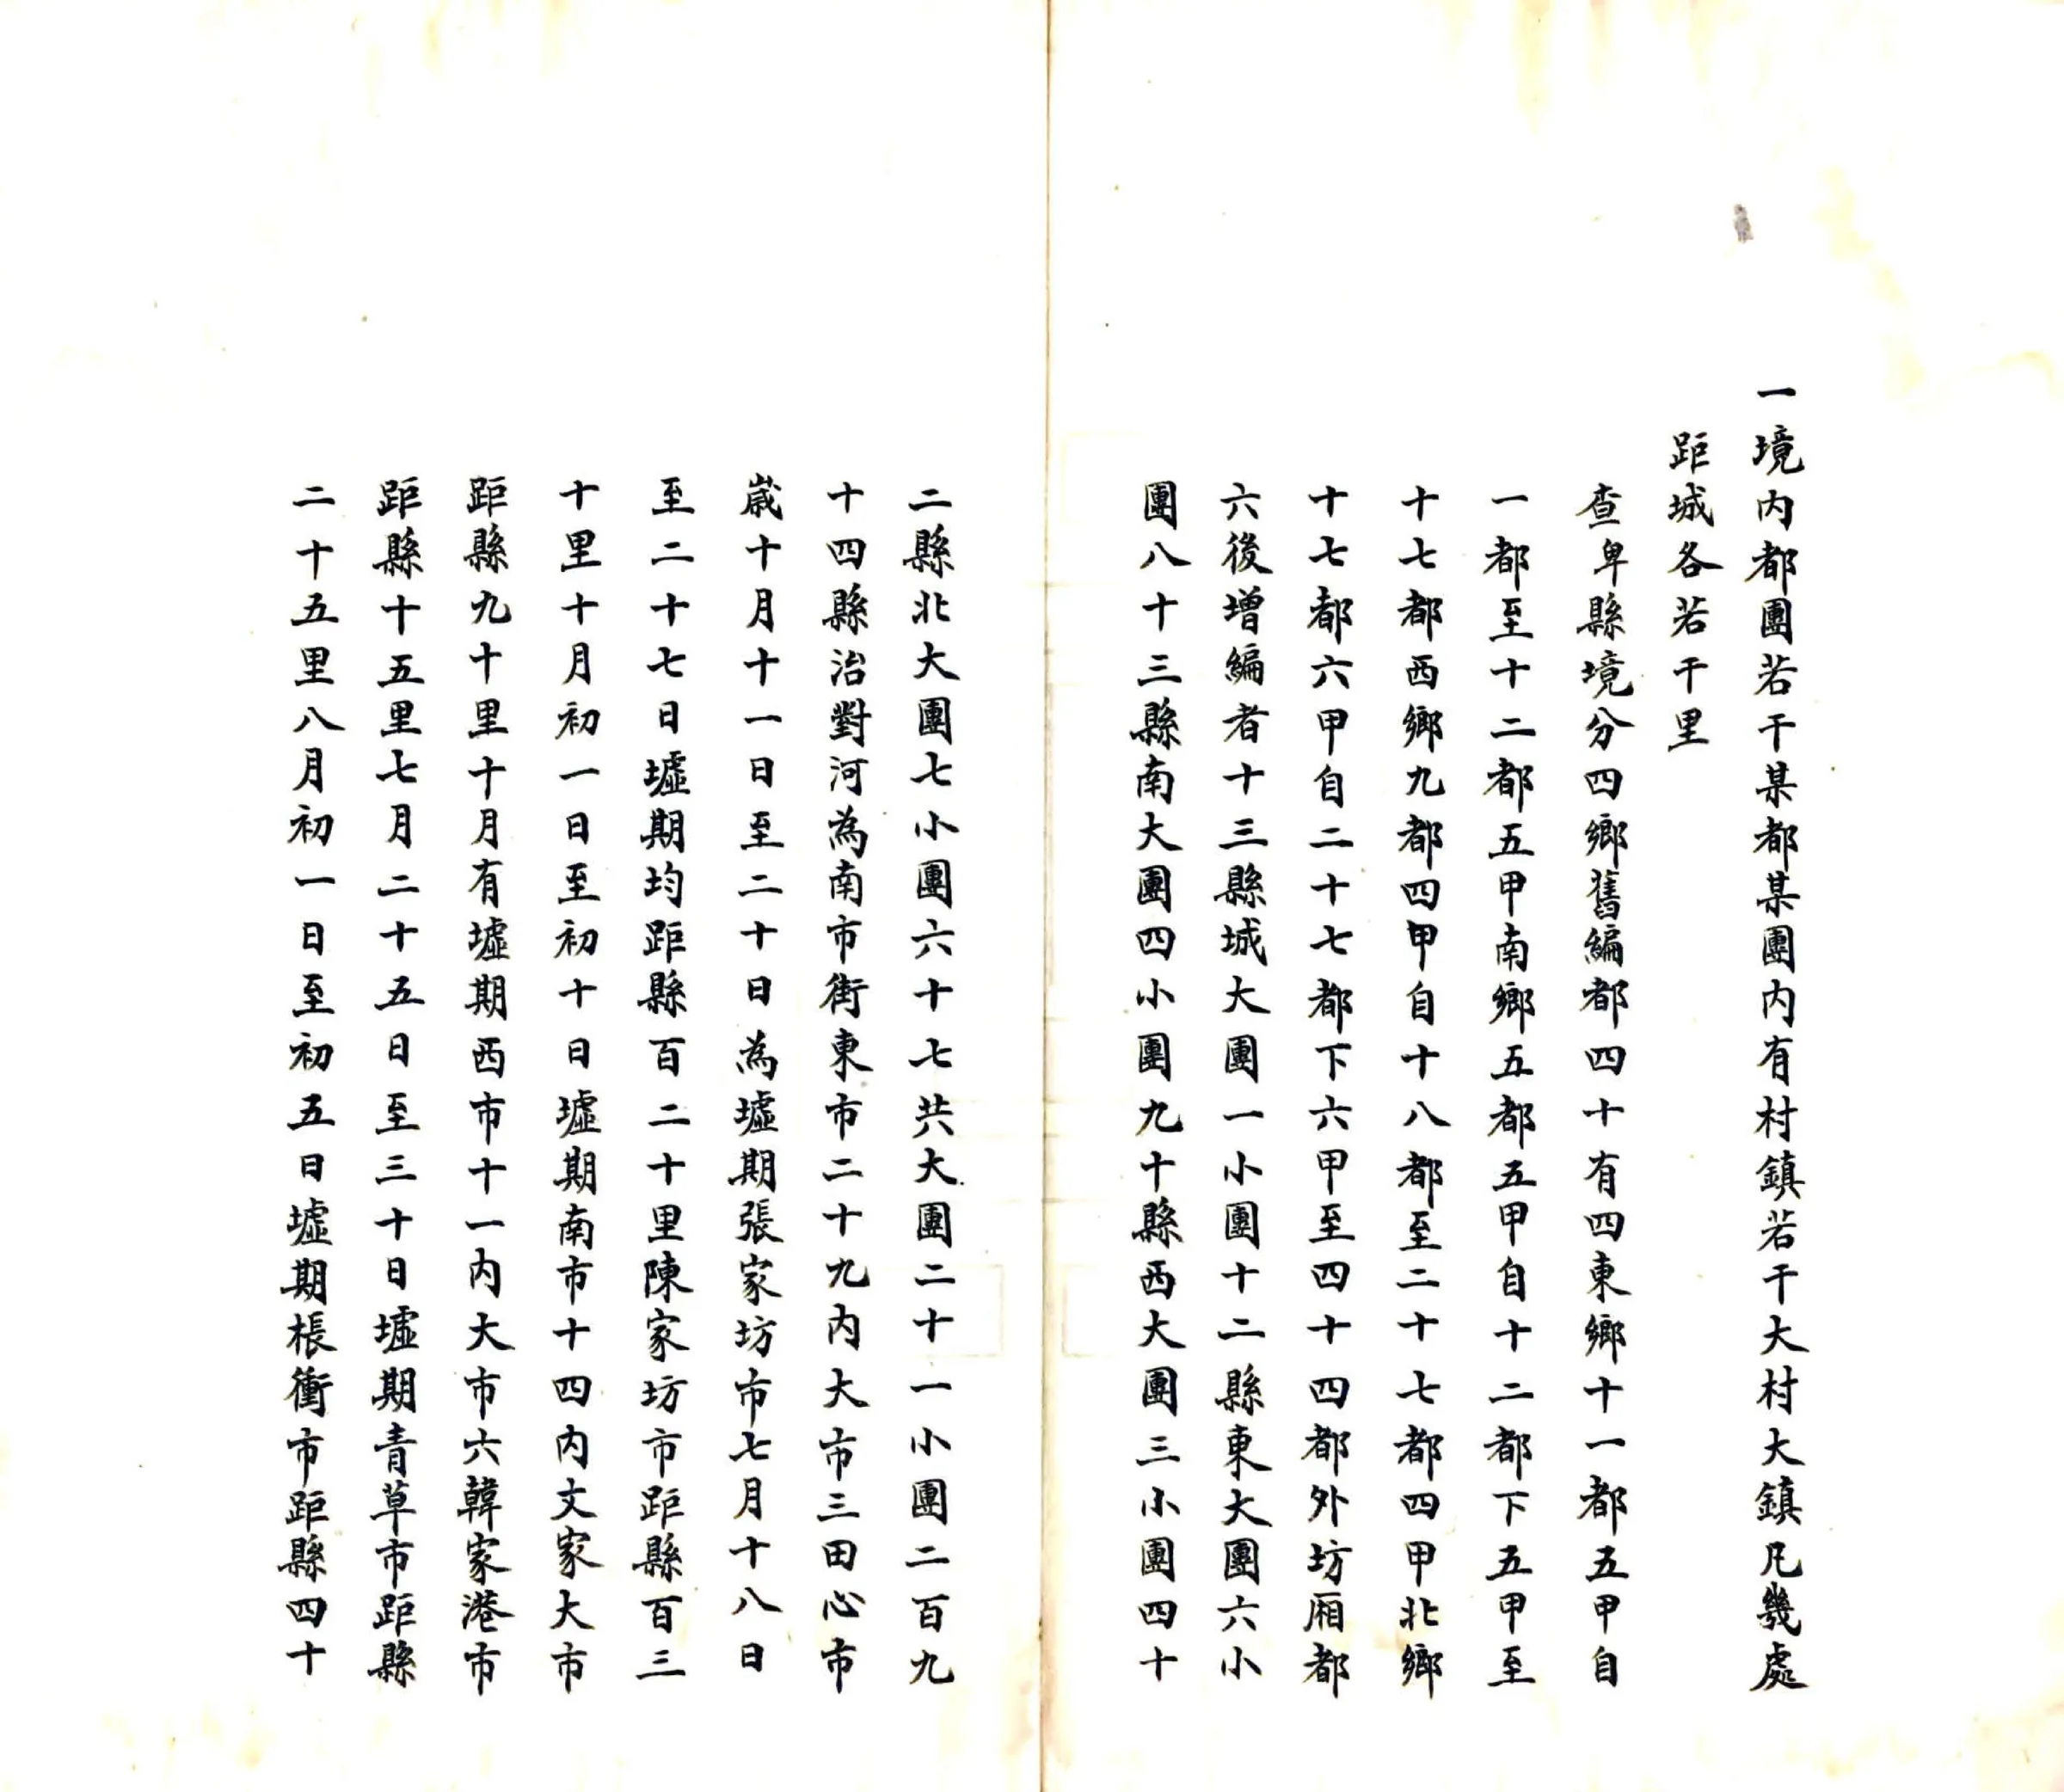 一境内都團若干某都某團内有村鎮若干大村大鎮凡幾處
距城各若干里
查卑縣境分四鄉舊編都四十有四東鄉十一都五甲自
一都至十二都五甲南鄉五都五甲自十二都下五甲至
十七都西鄉九都四甲自十八都至二十七都四甲北鄉
十七都六甲自二十七都下六甲至四十四都外坊廂都
六後增編者十三縣城大團一小團十二縣東大團六小
團八十三縣南大團四小團九十縣西大團三小團四十
二縣北大團七小團六十七共大團二十一小團二百九
十四縣治對河為南市街東市二十九内大市三田心市
歲十月十一日至二十日為墟期張家坊市七月十八日
至二十七日墟期均距縣百二十里陳家坊市距縣百三
十里十月初一日至初十日墟期南市十四内文家大市
距縣九十里十月有墟期西市十一内大市六韓家港市
距縣十五里七月二十五日至三十日墟期青草市距縣
二十五里八月初一日至初五日墟期棖衝市距縣四十